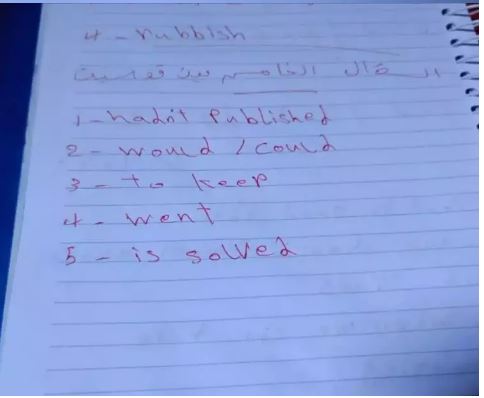 4 - rubbish
السؤال الخامس بين قوسين
1 - hadn't Published
2 - would / could
3 - to keep
4 - went
5 - is solved